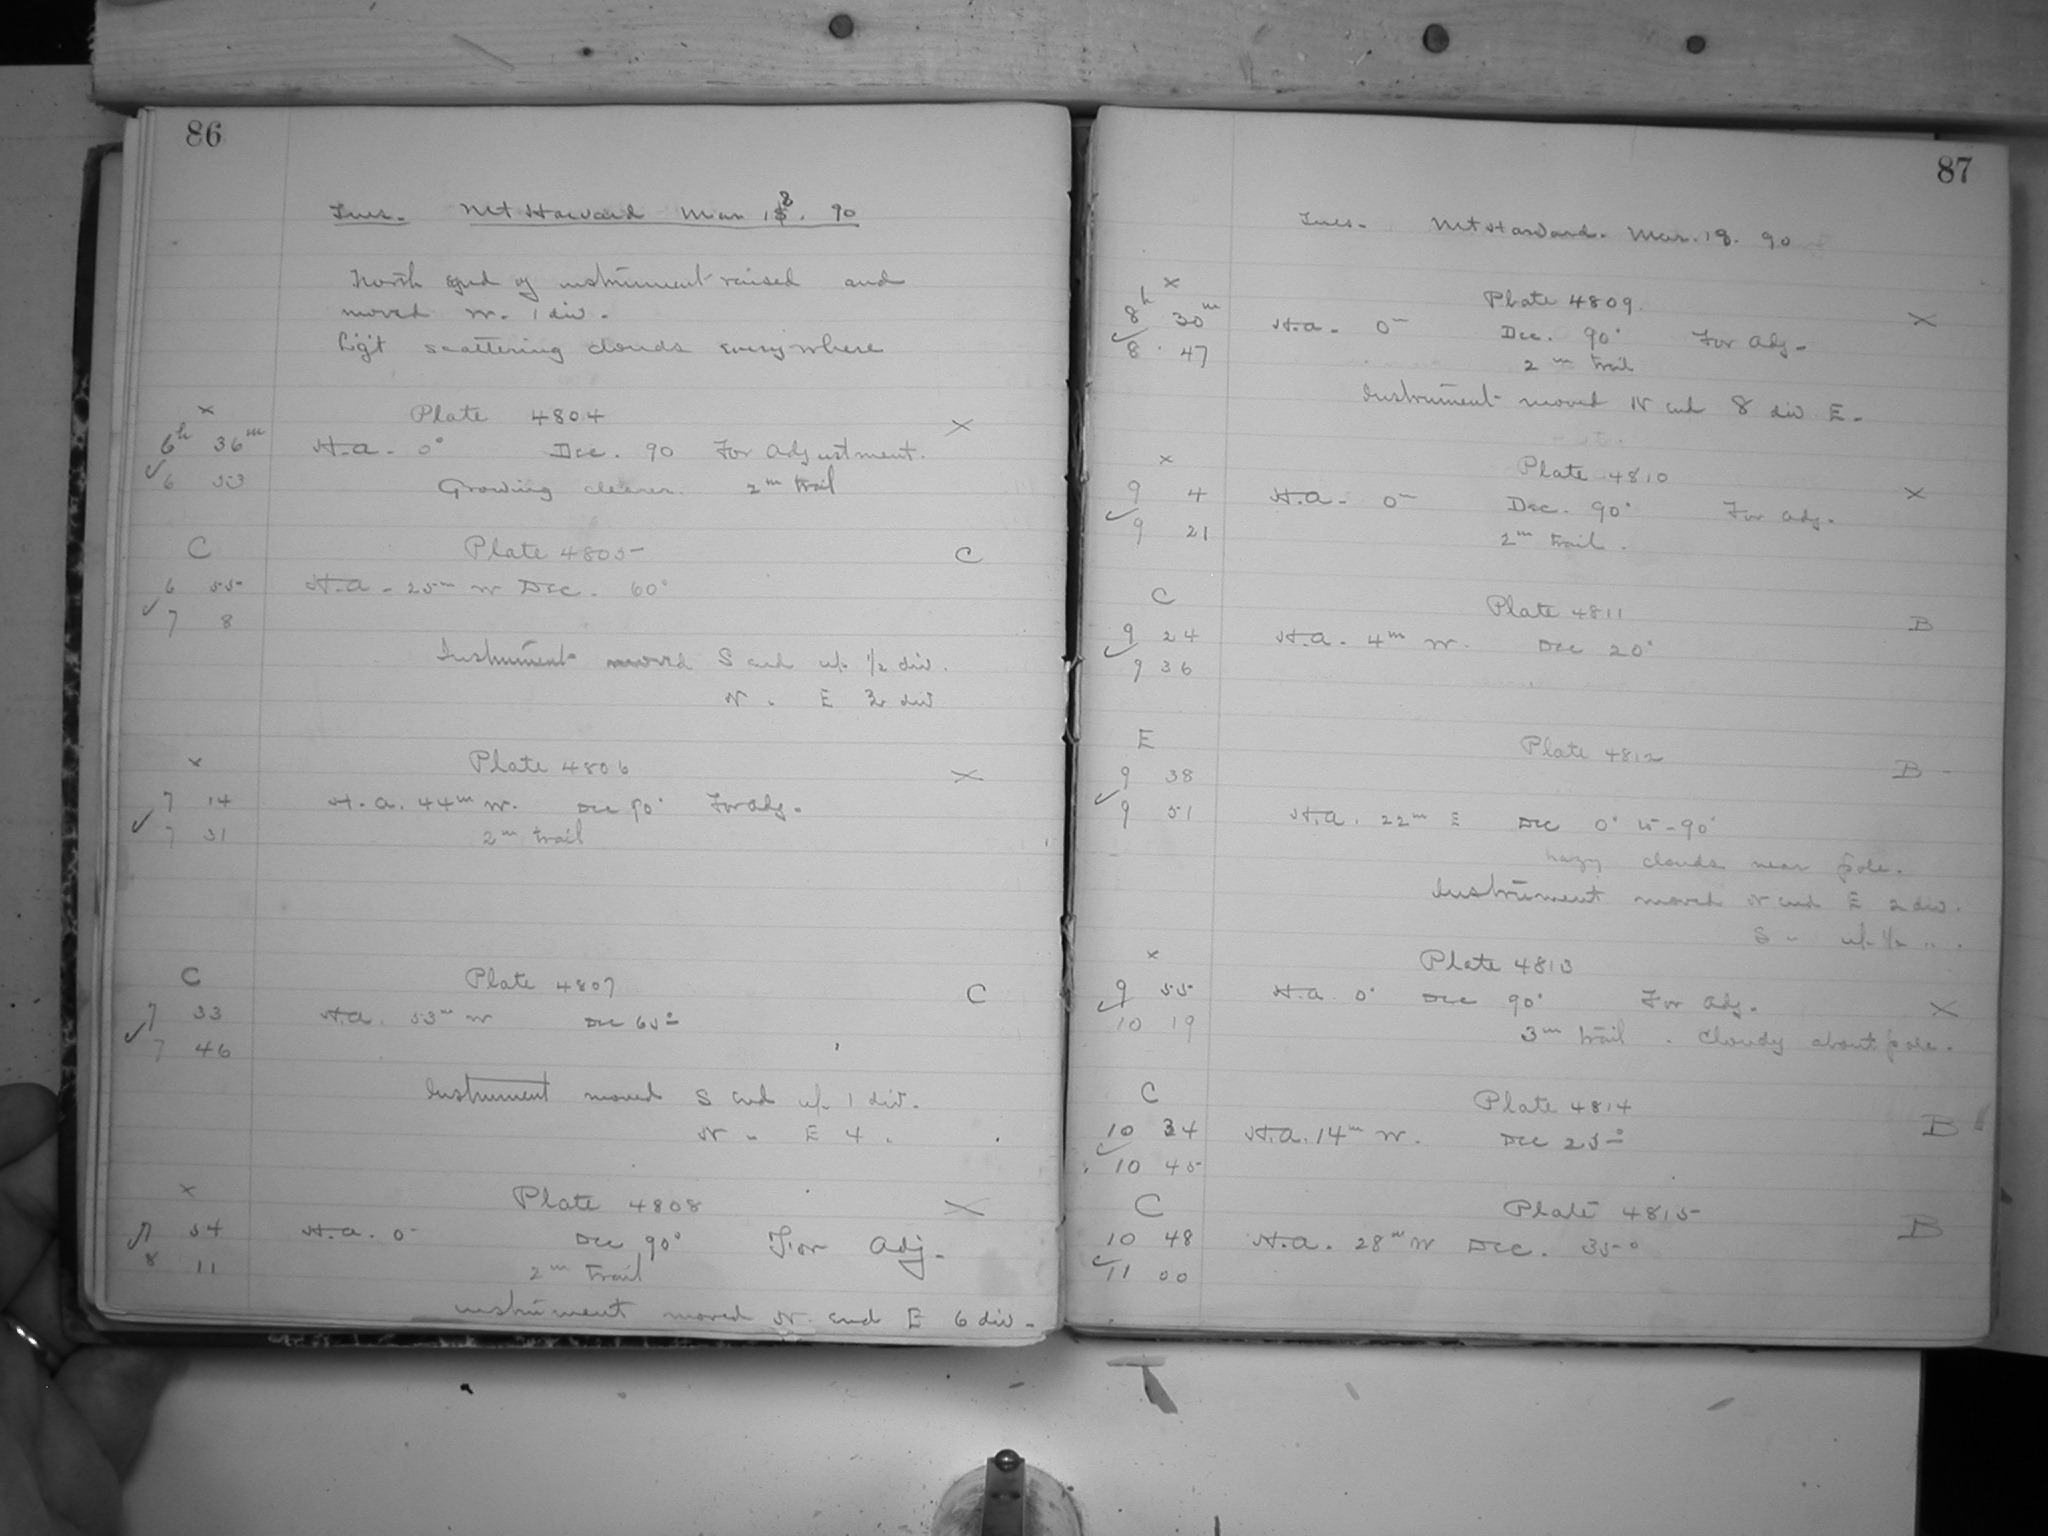 86
Tues. Mt Harvard Mar 18. 90
North end of instrument raised and
moved W. 1 div.
Lig't scattering clouds everywhere
x Plate 4804 x
6h 36m H.a. 0° Dec. 90 For Adjustment.
✓ 6 53 Growing clearer. 2m trail
C Plate 4805 C
6 55 H.a. 25m W Dec. 60°
✓ 7 8
Instrument moved S end up 1/2 div.
N. " E 3 div
x Plate 4806 x
7 14 H.a. 44m W. Dec 90° For Adj.
✓ 7 31 2m trail
C Plate 4807 C
7 33 H.a. 53m W Dec 65°
✓ 7 46
Instrument moved S end up 1 div.
N " E 4 "
x Plate 4808 x
✓ 7 54 H.a. 0 Dec 90° For Adj.
8 11 2m trail
instrument moved N. end E 6 div.
87
Tues. Mt Harvard. Mar. 18. 90
x Plate 4809. x
8h 30m H.a. 0m Dec. 90° For Adj.
✓ 8 47 2m trail
Instrument moved N end 8 div E.
x Plate 4810 x
9 4 H.a. 0m Dec. 90° For Adj.
✓ 9 21 2m trail.
C Plate 4811 B
9 24 H.a. 4m W. Dec 20°
✓ 9 36
E Plate 4812 B
9 38
✓ 9 51 H.a. 22m E Dec 0° to -90°
hazy clouds near pole.
Instrument moved N end E 2 div.
S " up 1/2 " .
x Plate 4813
9 55 H.a. 0° Dec 90° For Adj. x
✓ 10 19 3m trail. Cloudy about pole.
C Plate 4814
10 34 H.a. 14m W. Dec 25° B
✓ 10 45
C Plate 4815 B
10 48 H.a. 28m W Dec. 35°
✓ 11 00